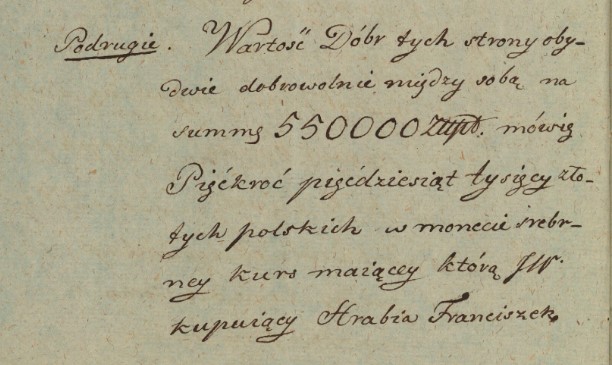 Podrugie. Wartość Dóbr tych strony oby-
dwie dobrowolnie między sobą na
summę 550000 złłpł. mówię
Pięćkroć pięćdziesiąt tysięcy zło-
tych polskich w monecie srebr-
ney kurs maiącey którą JW.
kupuiący Hrabia Franciszek